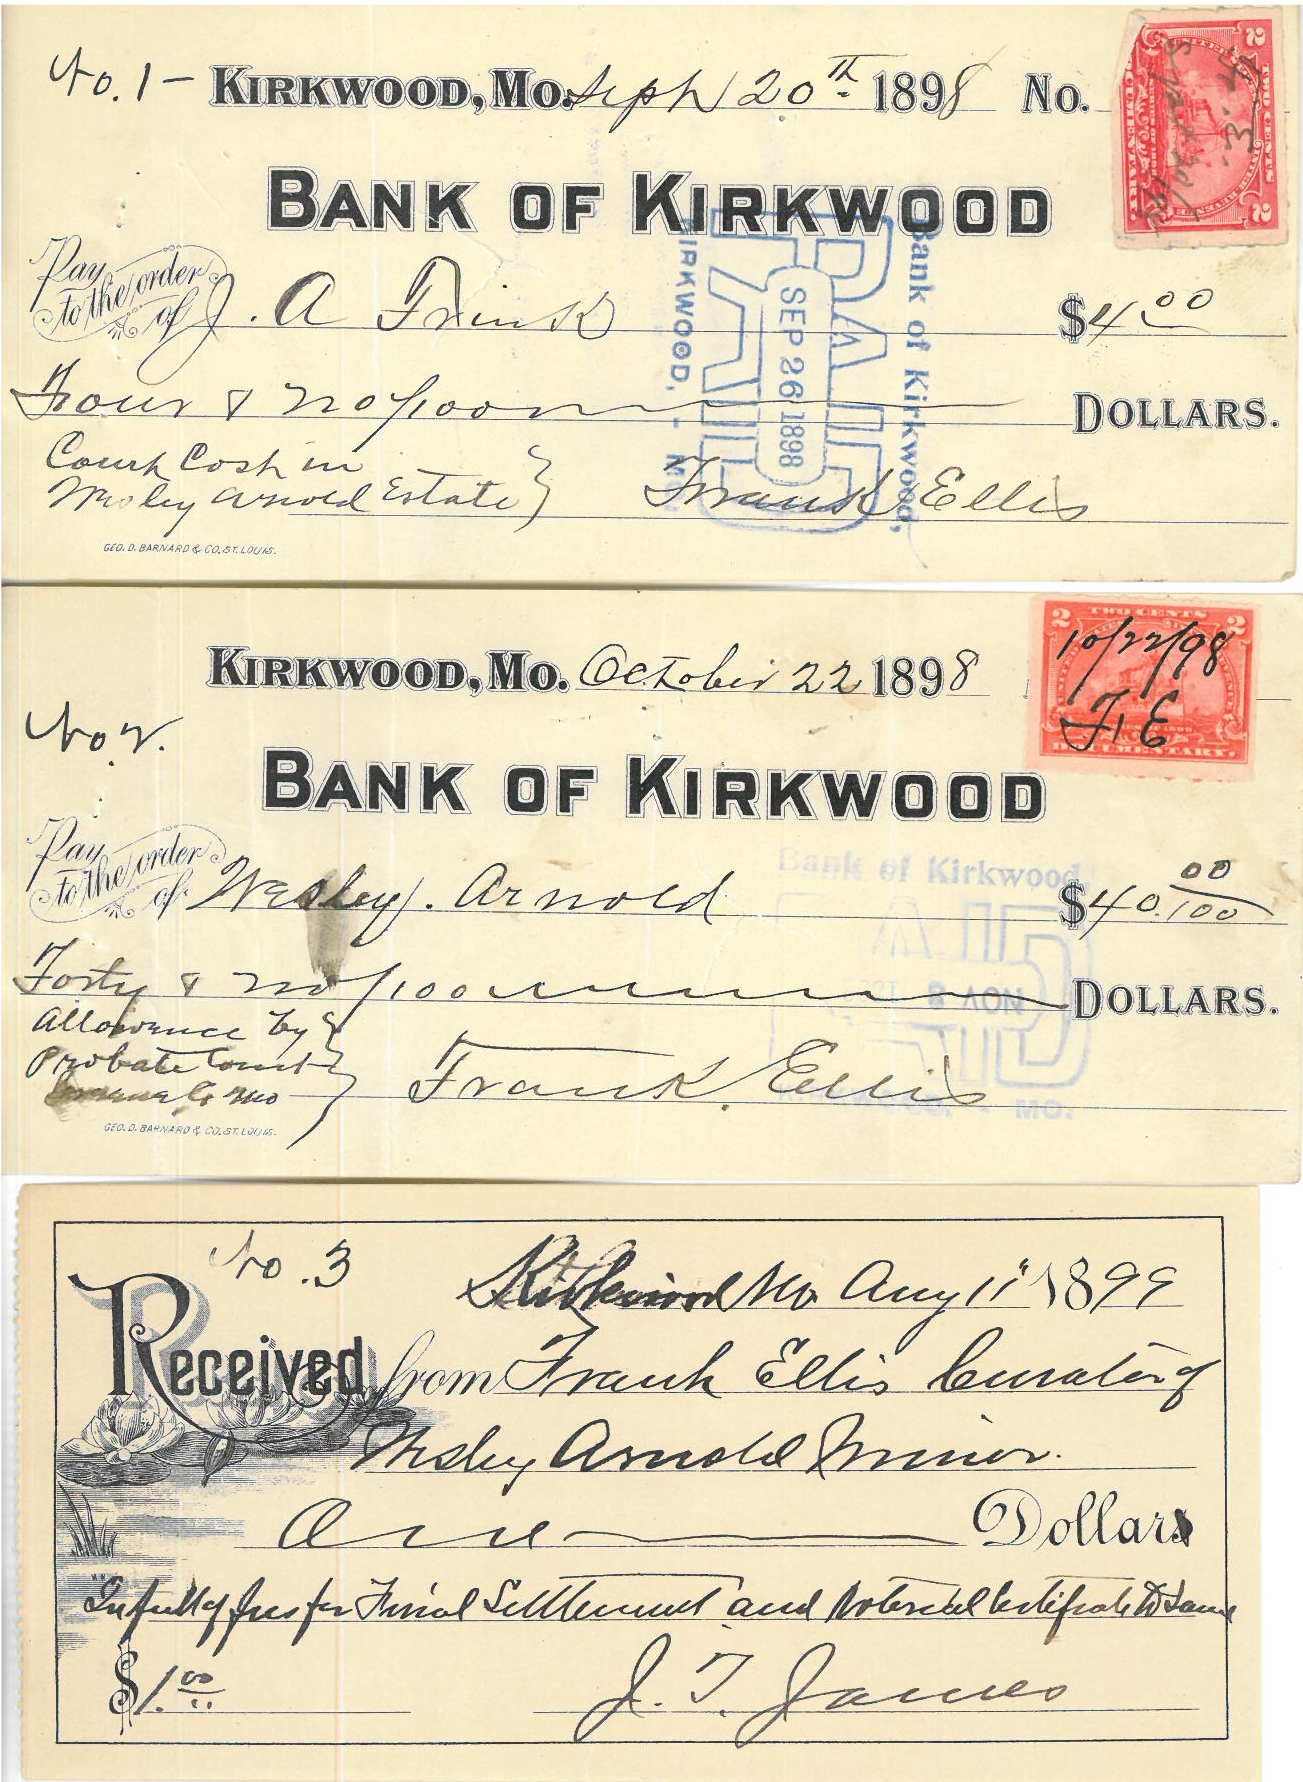 No. 1 - KIRKWOOD, Mo. Sept 20th 1898 No.
BANK OF KIRKWOOD
Pay to the order of J. A Frink $4 00
Four & no/100 DOLLARS.
Court Cost in
Wesley Arnold Estate } Frank Ellis
GEO. D. BARNARD & CO. ST. LOUIS.
Bank of Kirkwood,
PAID
SEP 26 1898
KIRKWOOD, - MO.
2 TWO CENTS 2
KIRKWOOD, Mo. October 22 1898
No 2.
10/22/98
F, E
DOCUMENTARY.
BANK OF KIRKWOOD
Pay to the order of Wesley. Arnold $40.00/100
Forty & no/100 DOLLARS.
Allowance by
Probate Court
Co Mo
Frank. Ellis
GEO. D. BARNARD & CO. ST. LOUIS.
Bank of Kirkwood
PAID
NOV 8
KIRKWOOD, - MO.
No. 3
Kirkwood Mo Aug 11" 1899
Received from Frank Ellis Curator of
Wesley Arnold Minor.
One Dollar
In full of fees for Final Settlement and Notarial Certificate to Same
$1. 00
J. T. James